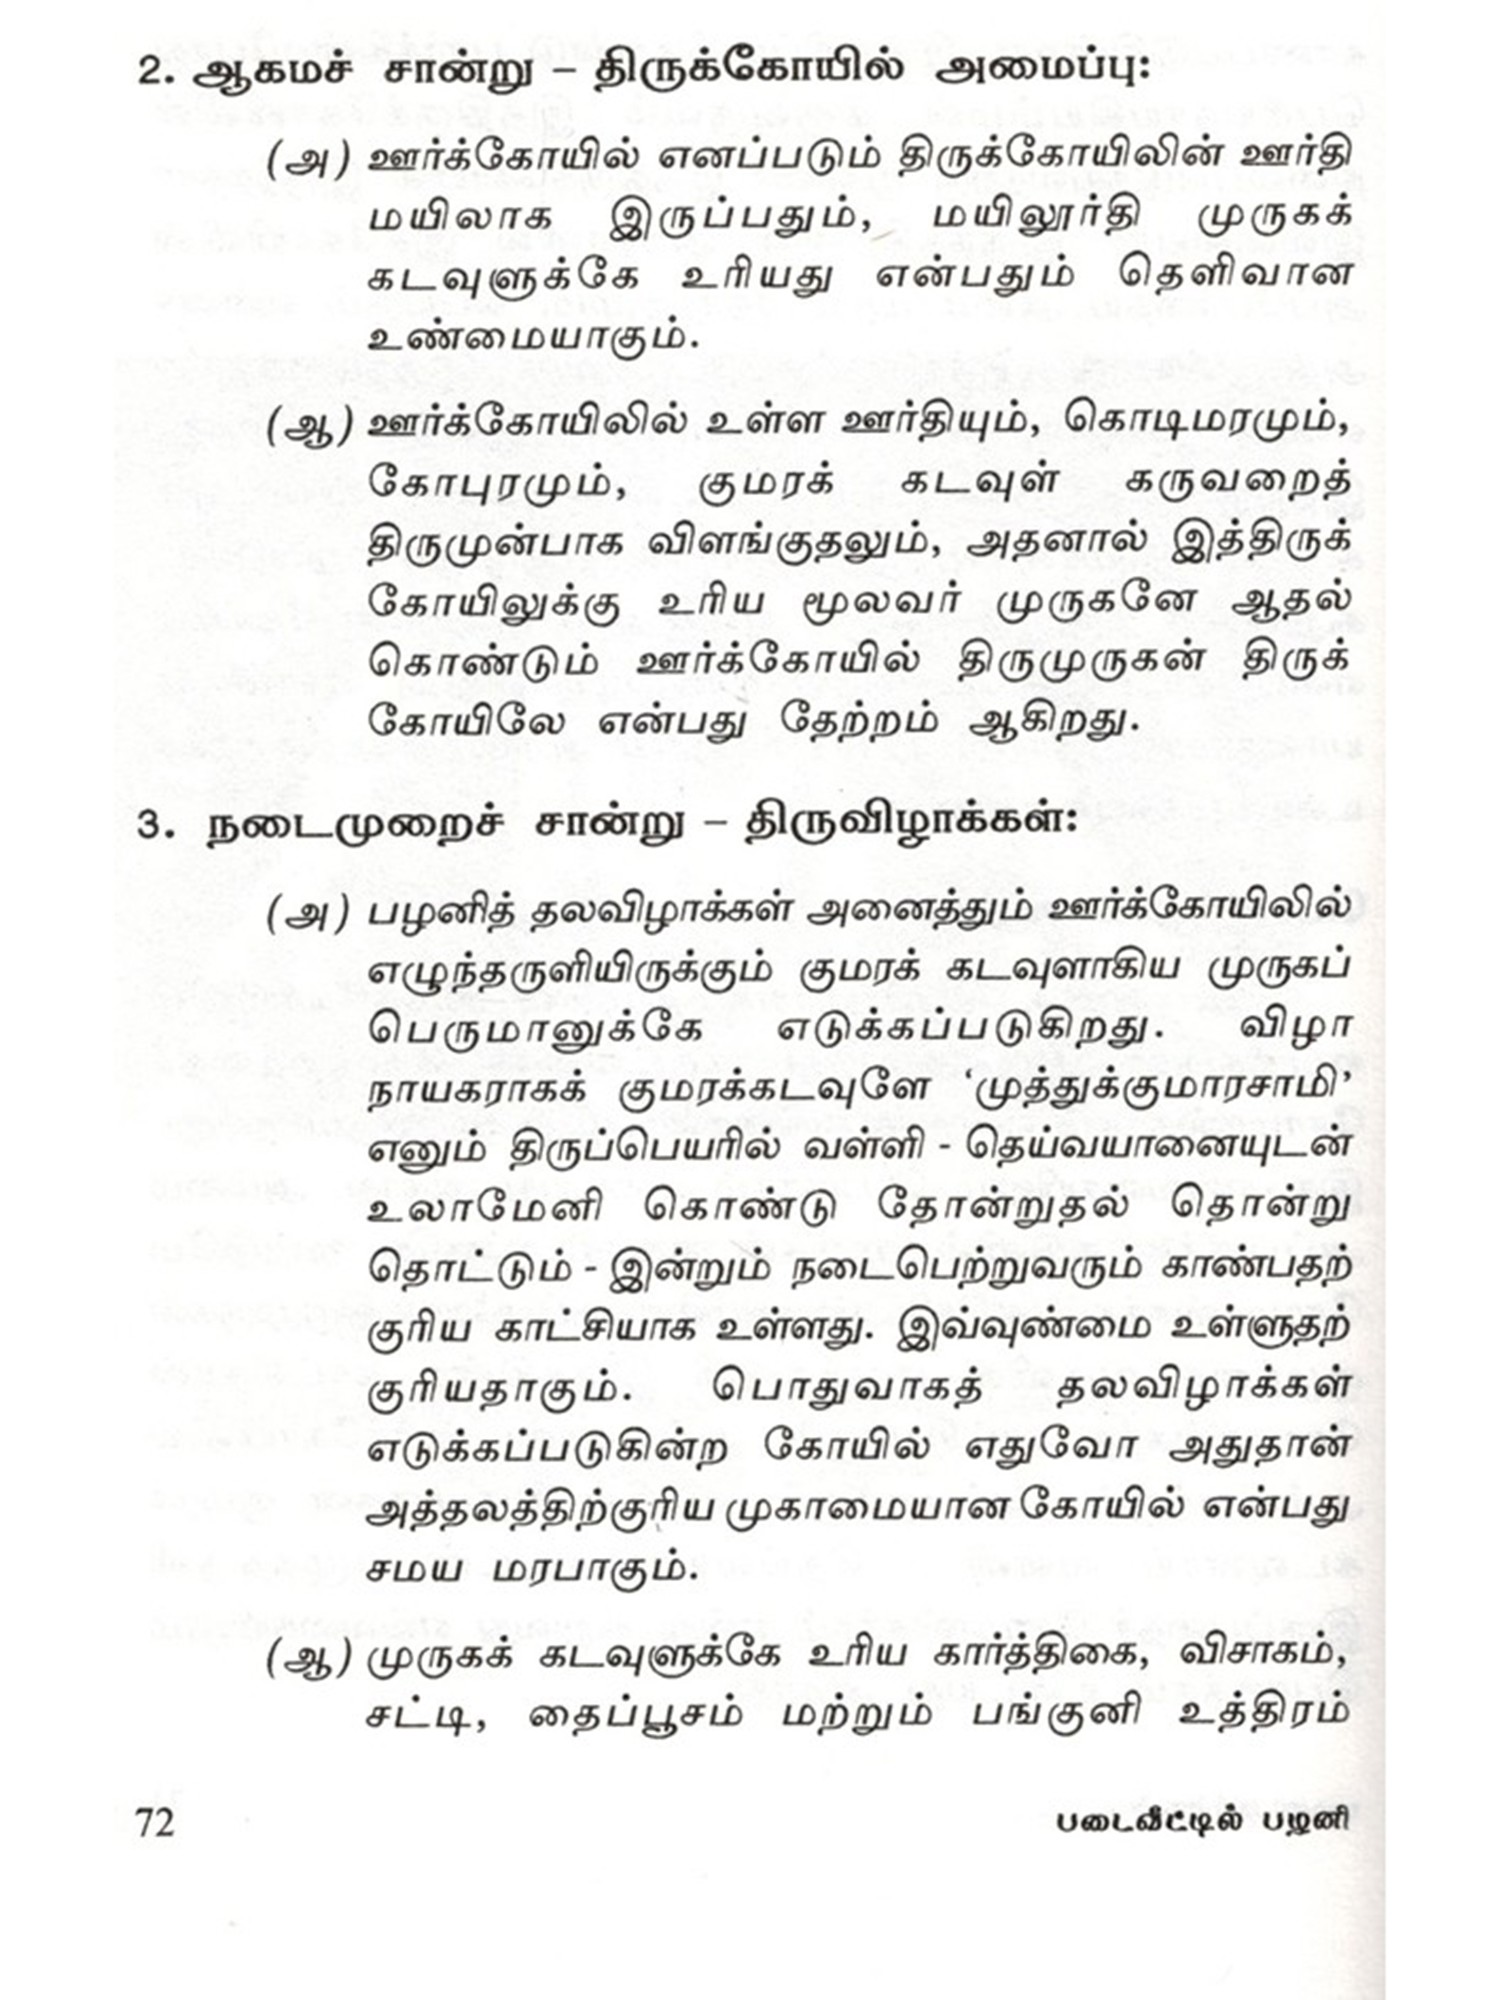 2. ஆகமச் சான்று – திருக்கோயில் அமைப்பு:
(அ) ஊர்க்கோயில் எனப்படும் திருக்கோயிலின் ஊர்தி
மயிலாக இருப்பதும், மயிலூர்தி முருகக்
கடவுளுக்கே உரியது என்பதும் தெளிவான
உண்மையாகும்.
(ஆ) ஊர்க்கோயிலில் உள்ள ஊர்தியும், கொடிமரமும்,
கோபுரமும், குமரக் கடவுள் கருவறைத்
திருமுன்பாக விளங்குதலும், அதனால் இத்திருக்
கோயிலுக்கு உரிய மூலவர் முருகனே ஆதல்
கொண்டும் ஊர்க்கோயில் திருமுருகன் திருக்
கோயிலே என்பது தேற்றம் ஆகிறது.
3. நடைமுறைச் சான்று – திருவிழாக்கள்:
(அ) பழனித் தலவிழாக்கள் அனைத்தும் ஊர்க்கோயிலில்
எழுந்தருளியிருக்கும் குமரக் கடவுளாகிய முருகப்
பெருமானுக்கே எடுக்கப்படுகிறது. விழா
நாயகராகக் குமரக்கடவுளே ‘முத்துக்குமாரசாமி’
எனும் திருப்பெயரில் வள்ளி - தெய்வயானையுடன்
உலாமேனி கொண்டு தோன்றுதல் தொன்று
தொட்டும் - இன்றும் நடைபெற்றுவரும் காண்பதற்
குரிய காட்சியாக உள்ளது. இவ்வுண்மை உள்ளுதற்
குரியதாகும். பொதுவாகத் தலவிழாக்கள்
எடுக்கப்படுகின்ற கோயில் எதுவோ அதுதான்
அத்தலத்திற்குரிய முகாமையான கோயில் என்பது
சமய மரபாகும்.
(ஆ) முருகக் கடவுளுக்கே உரிய கார்த்திகை, விசாகம்,
சட்டி, தைப்பூசம் மற்றும் பங்குனி உத்திரம்
72 படைவீட்டில் பழனி